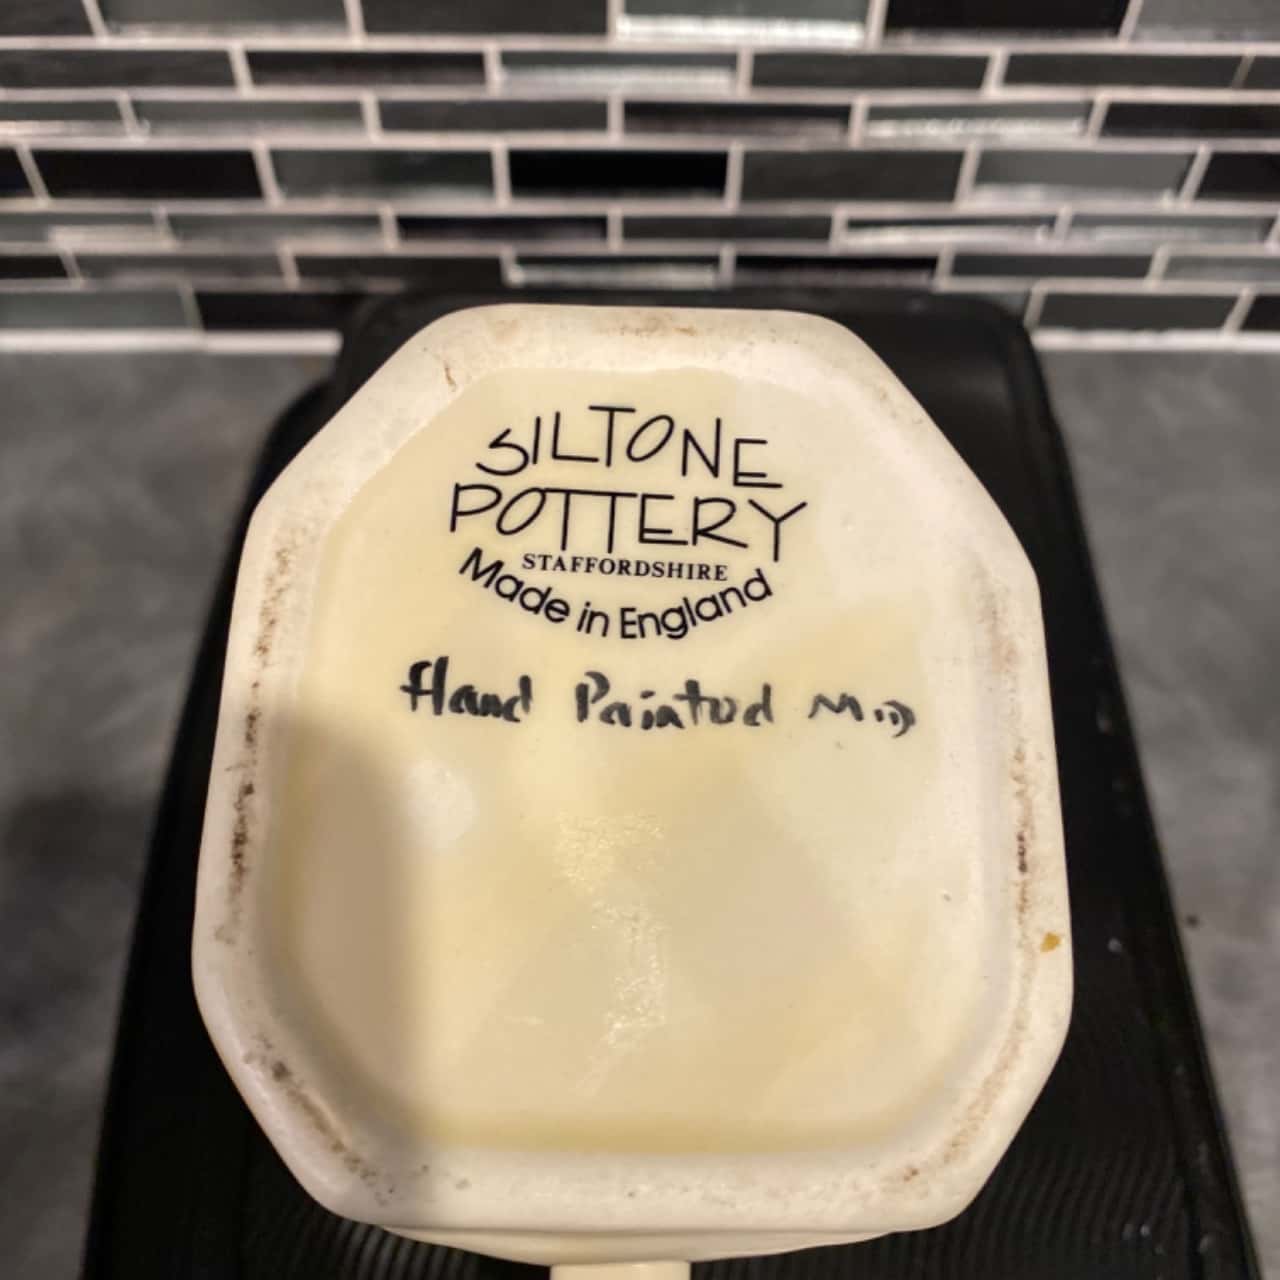 SILTONE
POTTERY
STAFFORDSHIRE
Made in England
Hand Painted